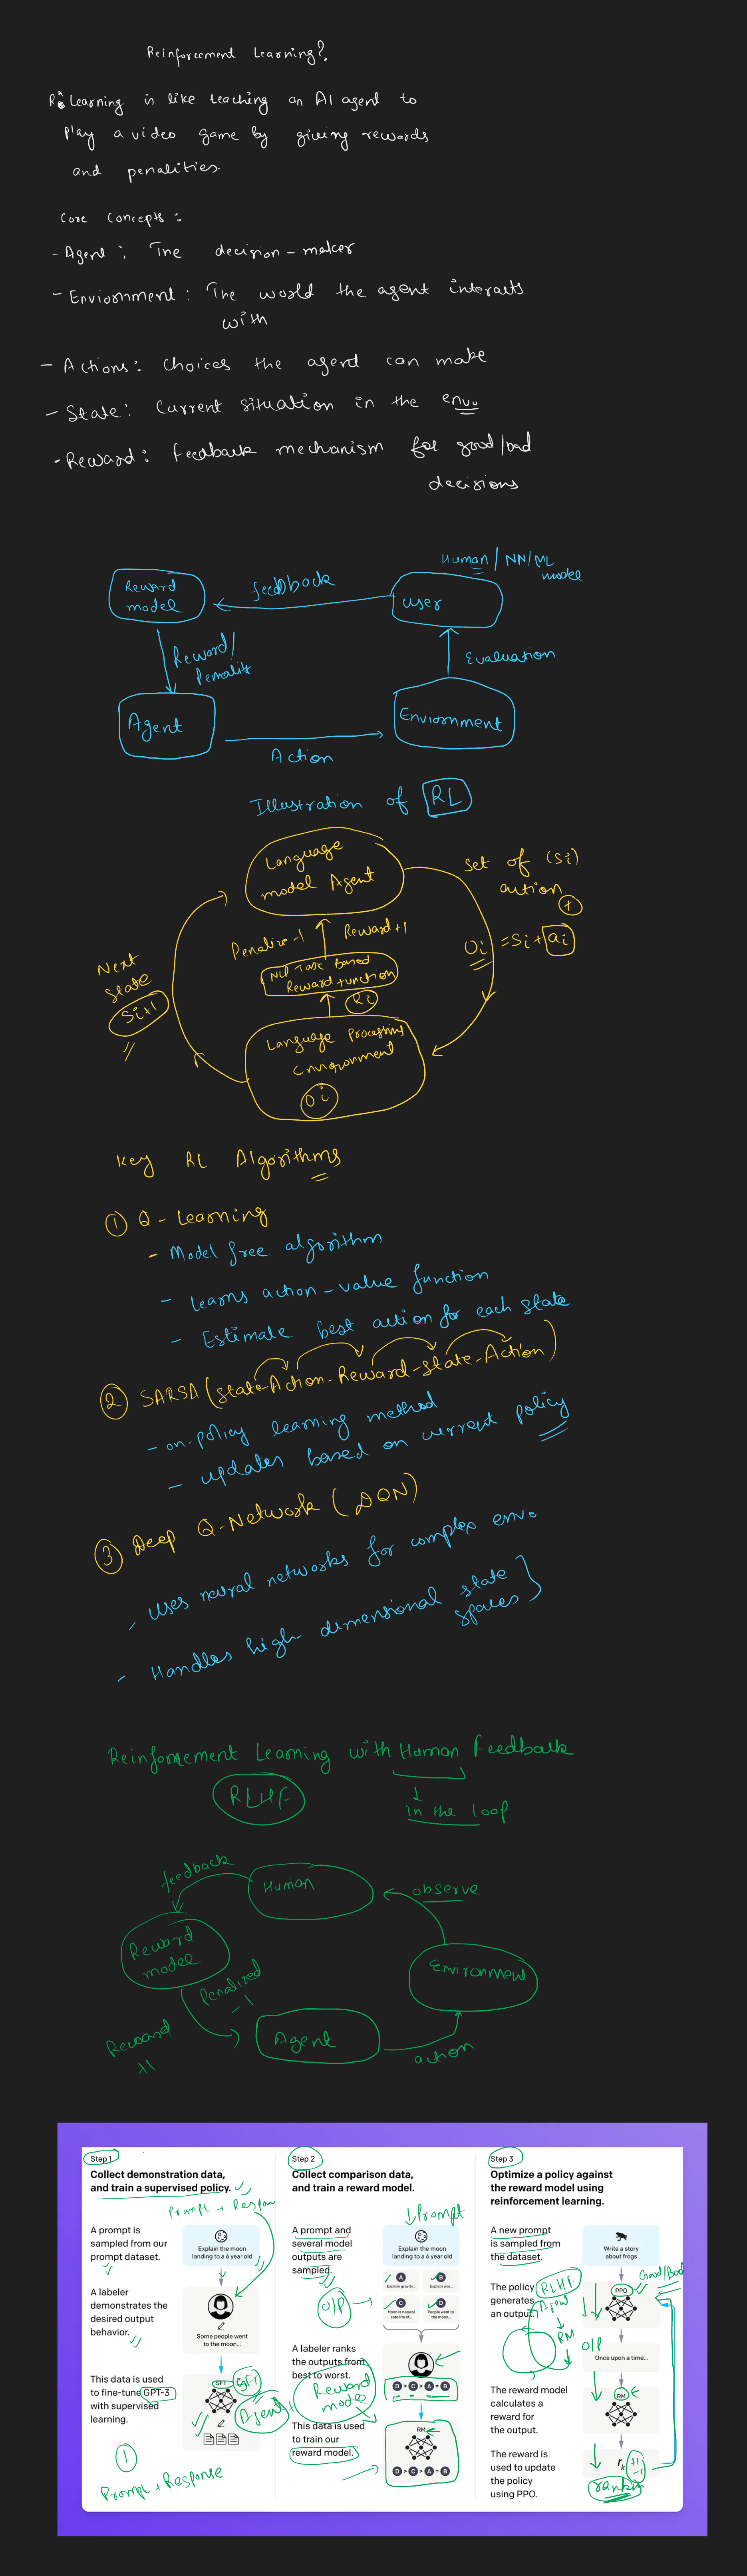 Reinforcement Learning?
R. Learning is like teaching an AI agent to
Play a video game by giving rewards
and penalities
Core Concepts:
- Agent: The decision-maker
- Enviornment: The world the agent interacts
with
- Actions: Choices the agent can make
- State: Current situation in the env.
- Reward: Feedback mechanism for good/bad
decisions
Human / NN/ML
model
Reward
model
feedback
user
Reward/
Evaluation
Agent
Enviornment
Action
Illustration of RL
Language
model Agent
Set of (Si)
action
+
Oi = Si + ai
Penalize -1
Reward +1
NLP Task Based
Reward function
Ri
Next
State
Si+1
Language Processing
Environment
Oi
Key RL Algorithms
1 Q-Learning
- Model free algorithm
- Learns action-value function
- Estimate best action for each state
2 SARSA (State-Action-Reward-State-Action)
- on-policy learning method
- updates based on current policy
3 Deep Q-Network (DQN)
- Uses neural networks for complex env.
- Handles high dimensional state
spaces
Reinforcement Learning with Human Feedback
RLHF
in the loop
feedback
Human
observe
Reward
model
Penalized
-1
Environment
Reward
+1
Agent
action
Step 1
Collect demonstration data,
and train a supervised policy.
Prompt + Respon
A prompt is
sampled from our
prompt dataset.
Explain the moon
landing to a 6 year old
A labeler
demonstrates the
desired output
behavior.
Some people went
to the moon...
This data is used
to fine-tune GPT-3
with supervised
learning.
SFT
SFT
Agent
1
Prompt + Response
Step 2
Collect comparison data,
and train a reward model.
Prompt
A prompt and
several model
outputs are
sampled.
O/P
Explain the moon
landing to a 6 year old
A
Explain gravity...
B
Explain war...
C
Moon is natural
satellite of...
D
People went to
the moon...
A labeler ranks
the outputs from
best to worst.
D > C > A = B
Reward
model
This data is used
to train our
reward model.
RM
D > C > A = B
Step 3
Optimize a policy against
the reward model using
reinforcement learning.
A new prompt
is sampled from
the dataset.
Write a story
about frogs
The policy
generates
an output.
RLHF
Agent
RM
PPO
Good/Bad
O/P
Once upon a time...
The reward model
calculates a
reward for
the output.
RM
The reward is
used to update
the policy
using PPO.
rk
+1
-1